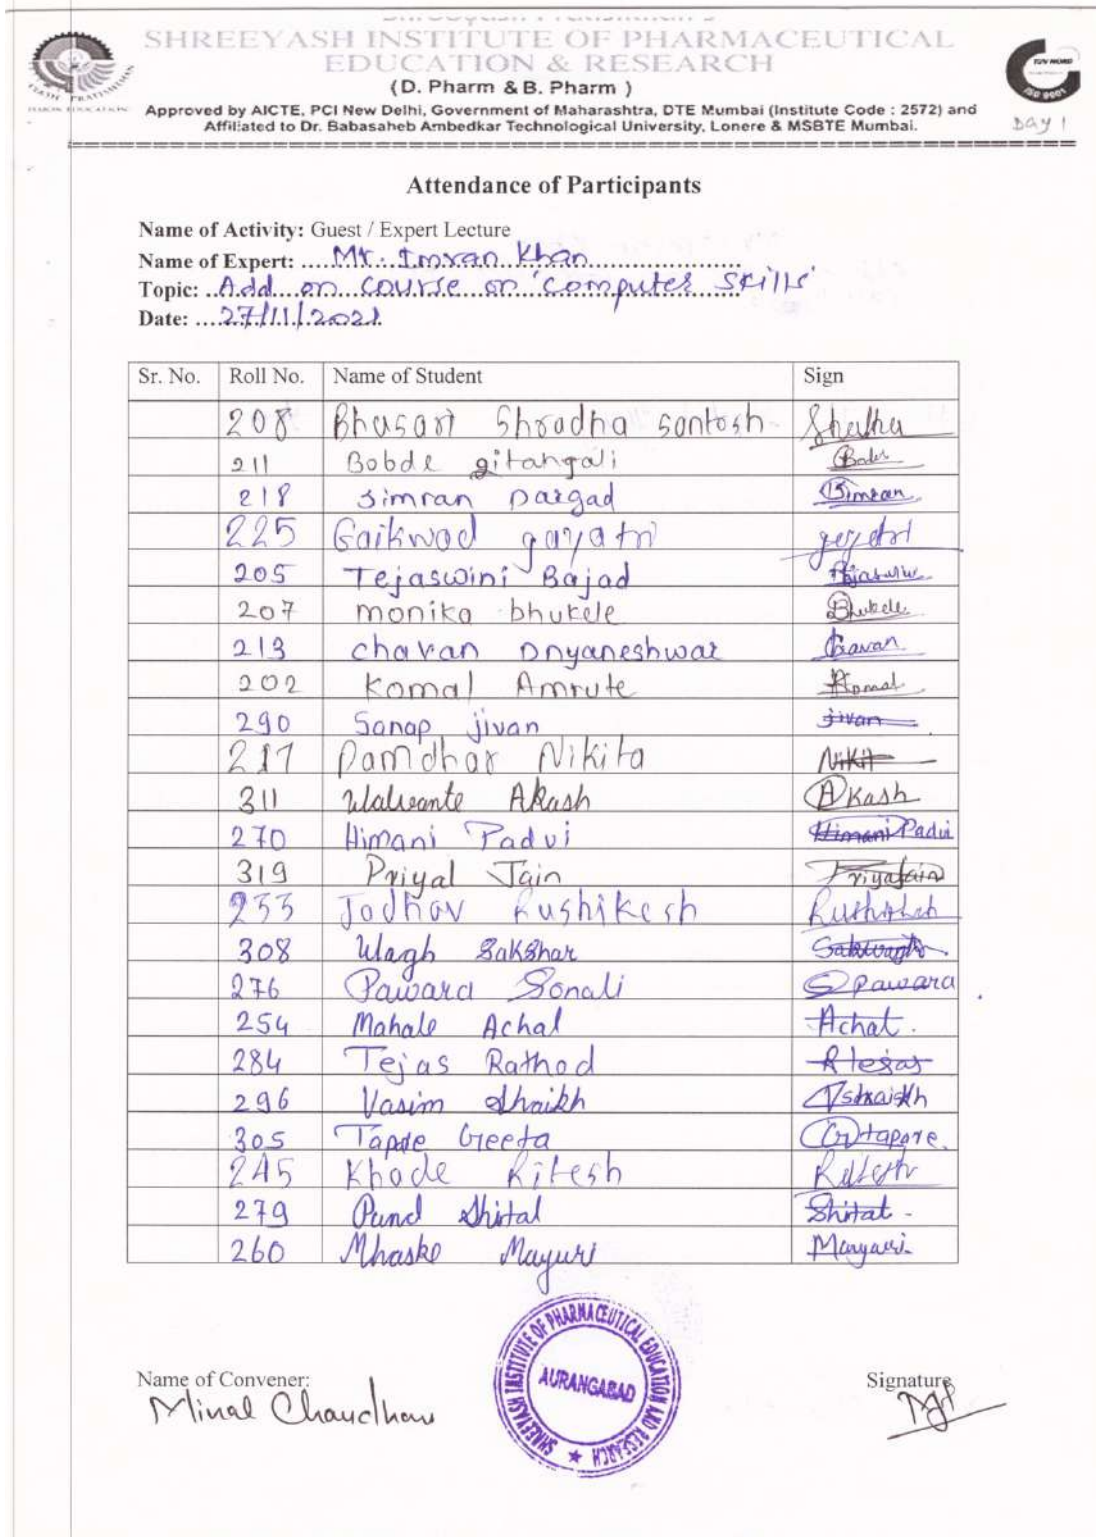 SHREEYASH INSTITUTE OF PHARMACEUTICAL
EDUCATION & RESEARCH
(D. Pharm & B. Pharm )
Approved by AICTE, PCI New Delhi, Government of Maharashtra, DTE Mumbai (Institute Code : 2572) and
Affiliated to Dr. Babasaheb Ambedkar Technological University, Lonere & MSBTE Mumbai.
TUV NORD
ISO 9001
DAY 1
Attendance of Participants
Name of Activity: Guest / Expert Lecture
Name of Expert: Mr. Imran Khan
Topic: Add on course on 'computer skills'
Date: 27/11/2021
Sr. No. Roll No. Name of Student Sign
208 Bhusari Shradha santosh
211 Bobde gitanjali
218 Simran Dargad Simran
225 Gaikwad gayatri
205 Tejaswini Bajad
207 monika bhukele Bhukele
213 chavan Dnyaneshwar Chavan
202 Komal Amrute Komal
290 Sanap jivan jivan
217 Damdhar Nikita Nikit
311 Walwante Akash Akash
270 Himani Padvi Himani Padvi
319 Priyal Jain
233 Jadhav Rushikesh
308 Wagh Sakshar
276 Pawara Sonali SPawara
254 Mahale Achal Achal.
284 Tejas Rathod RTejas
296 Vasim Shaikh VShaikh
305 Geeta
245 Khade Ritesh Ritesh
279 Pund Shital Shital -
260 Mhaske Mayuri Mayuri
SHREEYASH INSTITUTE OF PHARMACEUTICAL EDUCATION AND RESEARCH
AURANGABAD
Name of Convener: Signature
Minal Chaudhari